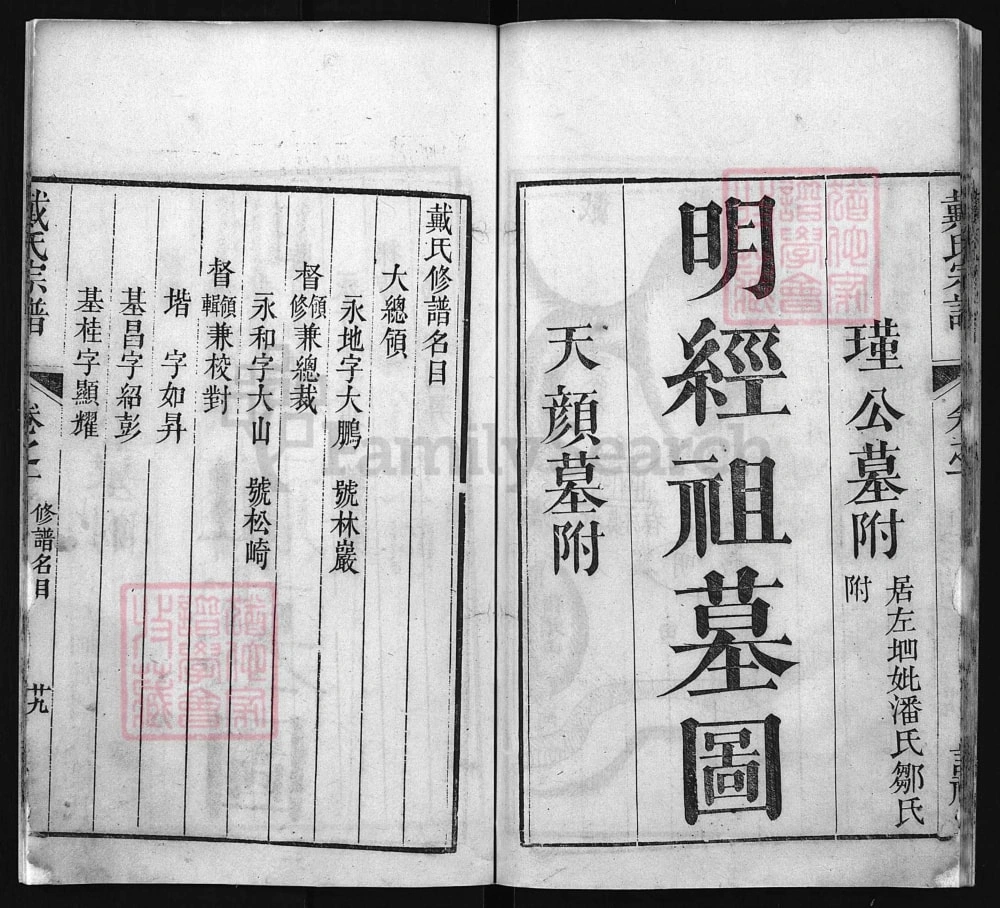 戴氏宗譜
瑾公墓附
居左𡊢妣潘氏鄒氏
附
明經祖墓圖
天顏墓附
戴氏修譜名目
大總領
永地字大鵬 號林巖
督修領兼總裁
永和字大山 號松崎
督輯領兼校對
堦 字如昇
基昌字紹彭
基桂字顯耀
戴氏宗譜
卷之一
修譜名目
廿九
FamilySearch